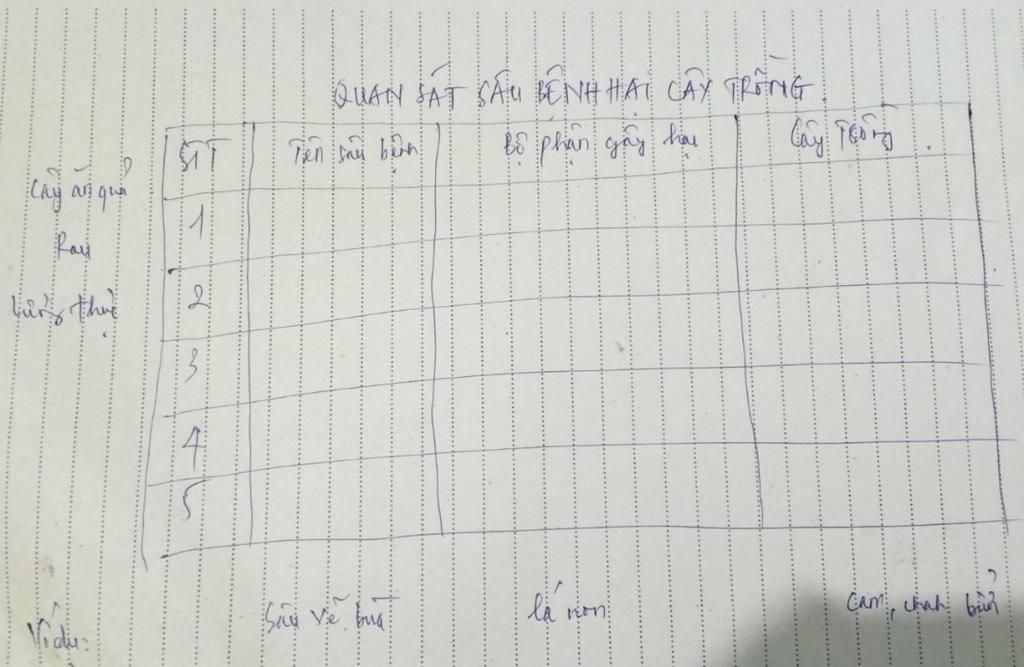 QUAN SÁT SÂU BỆNH HẠI CÂY TRỒNG
STT Tên sâu bệnh Bộ phận gây hại Cây trồng
Cây ăn quả
1
Rau
2
lương thực
3
4
5
Ví dụ: Sâu vẽ bùa lá non Cam, chanh bưởi